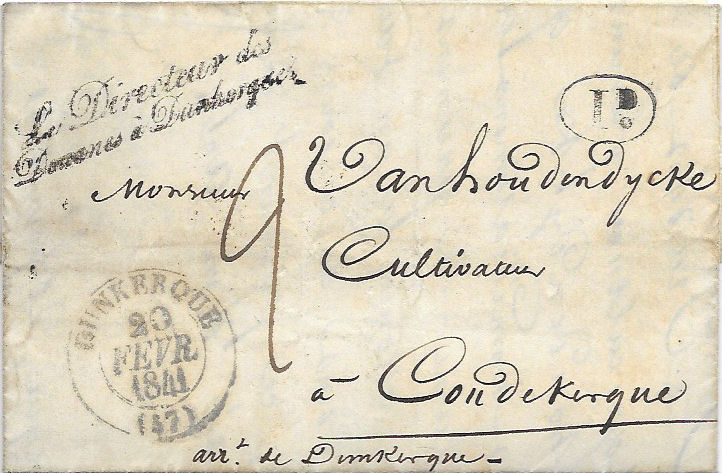 Le Directeur des
Douanes à Dunkerque
1D.
Monsieur Vanhoudendycke
2
Cultivateur
DUNKERQUE
20
FEVR.
1841
(57)
à Coudekerque
arr.t de Dunkerque